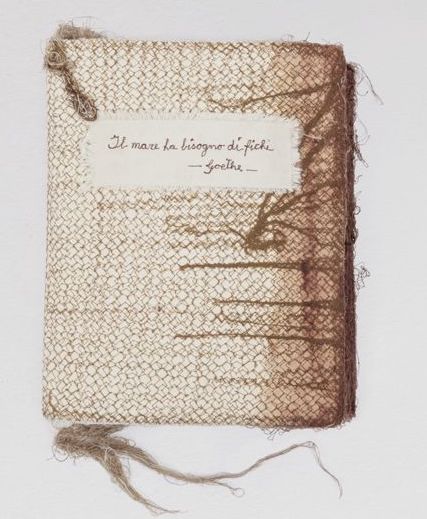 Il mare ha bisogno di fichi
— Goethe —